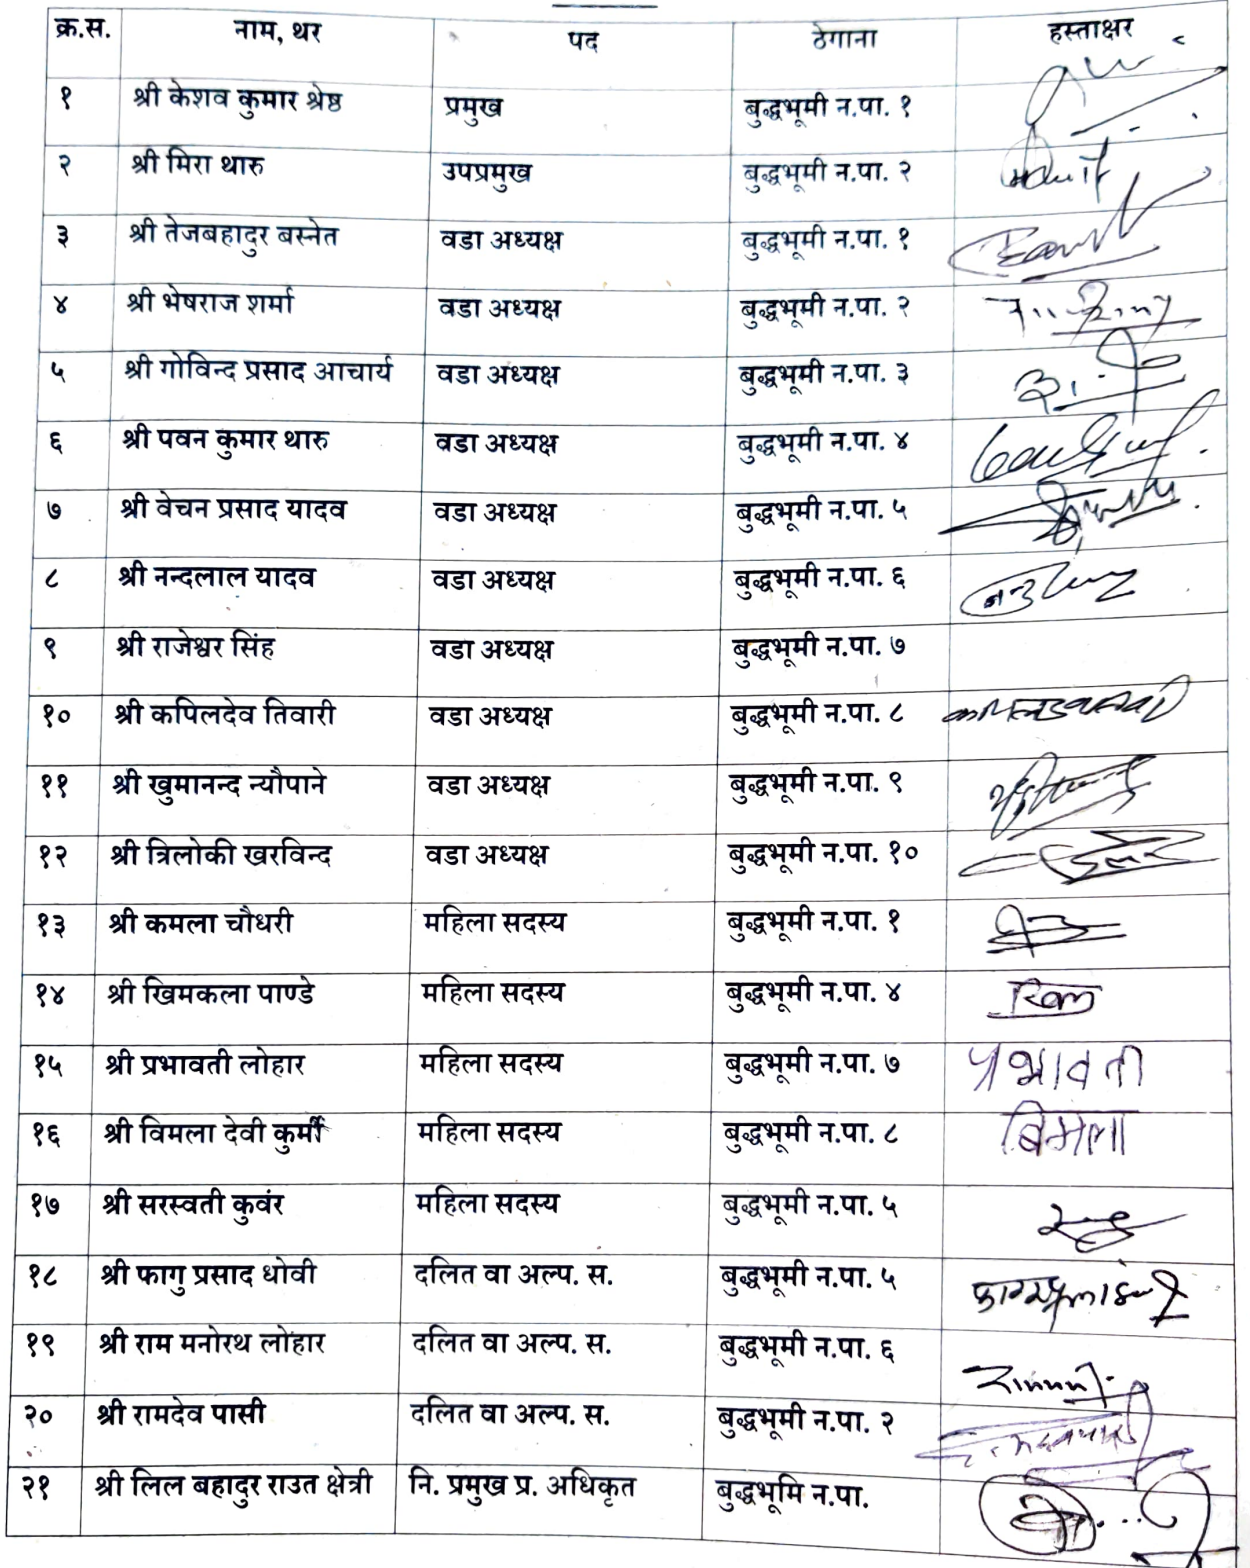 क्र.स. नाम, थर पद ठेगाना हस्ताक्षर
१ श्री केशव कुमार श्रेष्ठ प्रमुख बुद्धभूमी न.पा. १
२ श्री मिरा थारु उपप्रमुख बुद्धभूमी न.पा. २
३ श्री तेजबहादुर बस्नेत वडा अध्यक्ष बुद्धभूमी न.पा. १
४ श्री भेषराज शर्मा वडा अध्यक्ष बुद्धभूमी न.पा. २
५ श्री गोविन्द प्रसाद आचार्य वडा अध्यक्ष बुद्धभूमी न.पा. ३
६ श्री पवन कुमार थारु वडा अध्यक्ष बुद्धभूमी न.पा. ४
७ श्री वेचन प्रसाद यादव वडा अध्यक्ष बुद्धभूमी न.पा. ५
८ श्री नन्दलाल यादव वडा अध्यक्ष बुद्धभूमी न.पा. ६
९ श्री राजेश्वर सिंह वडा अध्यक्ष बुद्धभूमी न.पा. ७
१० श्री कपिलदेव तिवारी वडा अध्यक्ष बुद्धभूमी न.पा. ८
११ श्री खुमानन्द न्यौपाने वडा अध्यक्ष बुद्धभूमी न.पा. ९
१२ श्री त्रिलोकी खरविन्द वडा अध्यक्ष बुद्धभूमी न.पा. १०
१३ श्री कमला चौधरी महिला सदस्य बुद्धभूमी न.पा. १
१४ श्री खिमकला पाण्डे महिला सदस्य बुद्धभूमी न.पा. ४
१५ श्री प्रभावती लोहार महिला सदस्य बुद्धभूमी न.पा. ७ प्रभावती
१६ श्री विमला देवी कुर्मी महिला सदस्य बुद्धभूमी न.पा. ८ बिमला
१७ श्री सरस्वती कुवंर महिला सदस्य बुद्धभूमी न.पा. ५
१८ श्री फागु प्रसाद धोवी दलित वा अल्प. स. बुद्धभूमी न.पा. ५
१९ श्री राम मनोरथ लोहार दलित वा अल्प. स. बुद्धभूमी न.पा. ६
२० श्री रामदेव पासी दलित वा अल्प. स. बुद्धभूमी न.पा. २
२१ श्री लिल बहादुर राउत क्षेत्री नि. प्रमुख प्र. अधिकृत बुद्धभूमि न.पा.